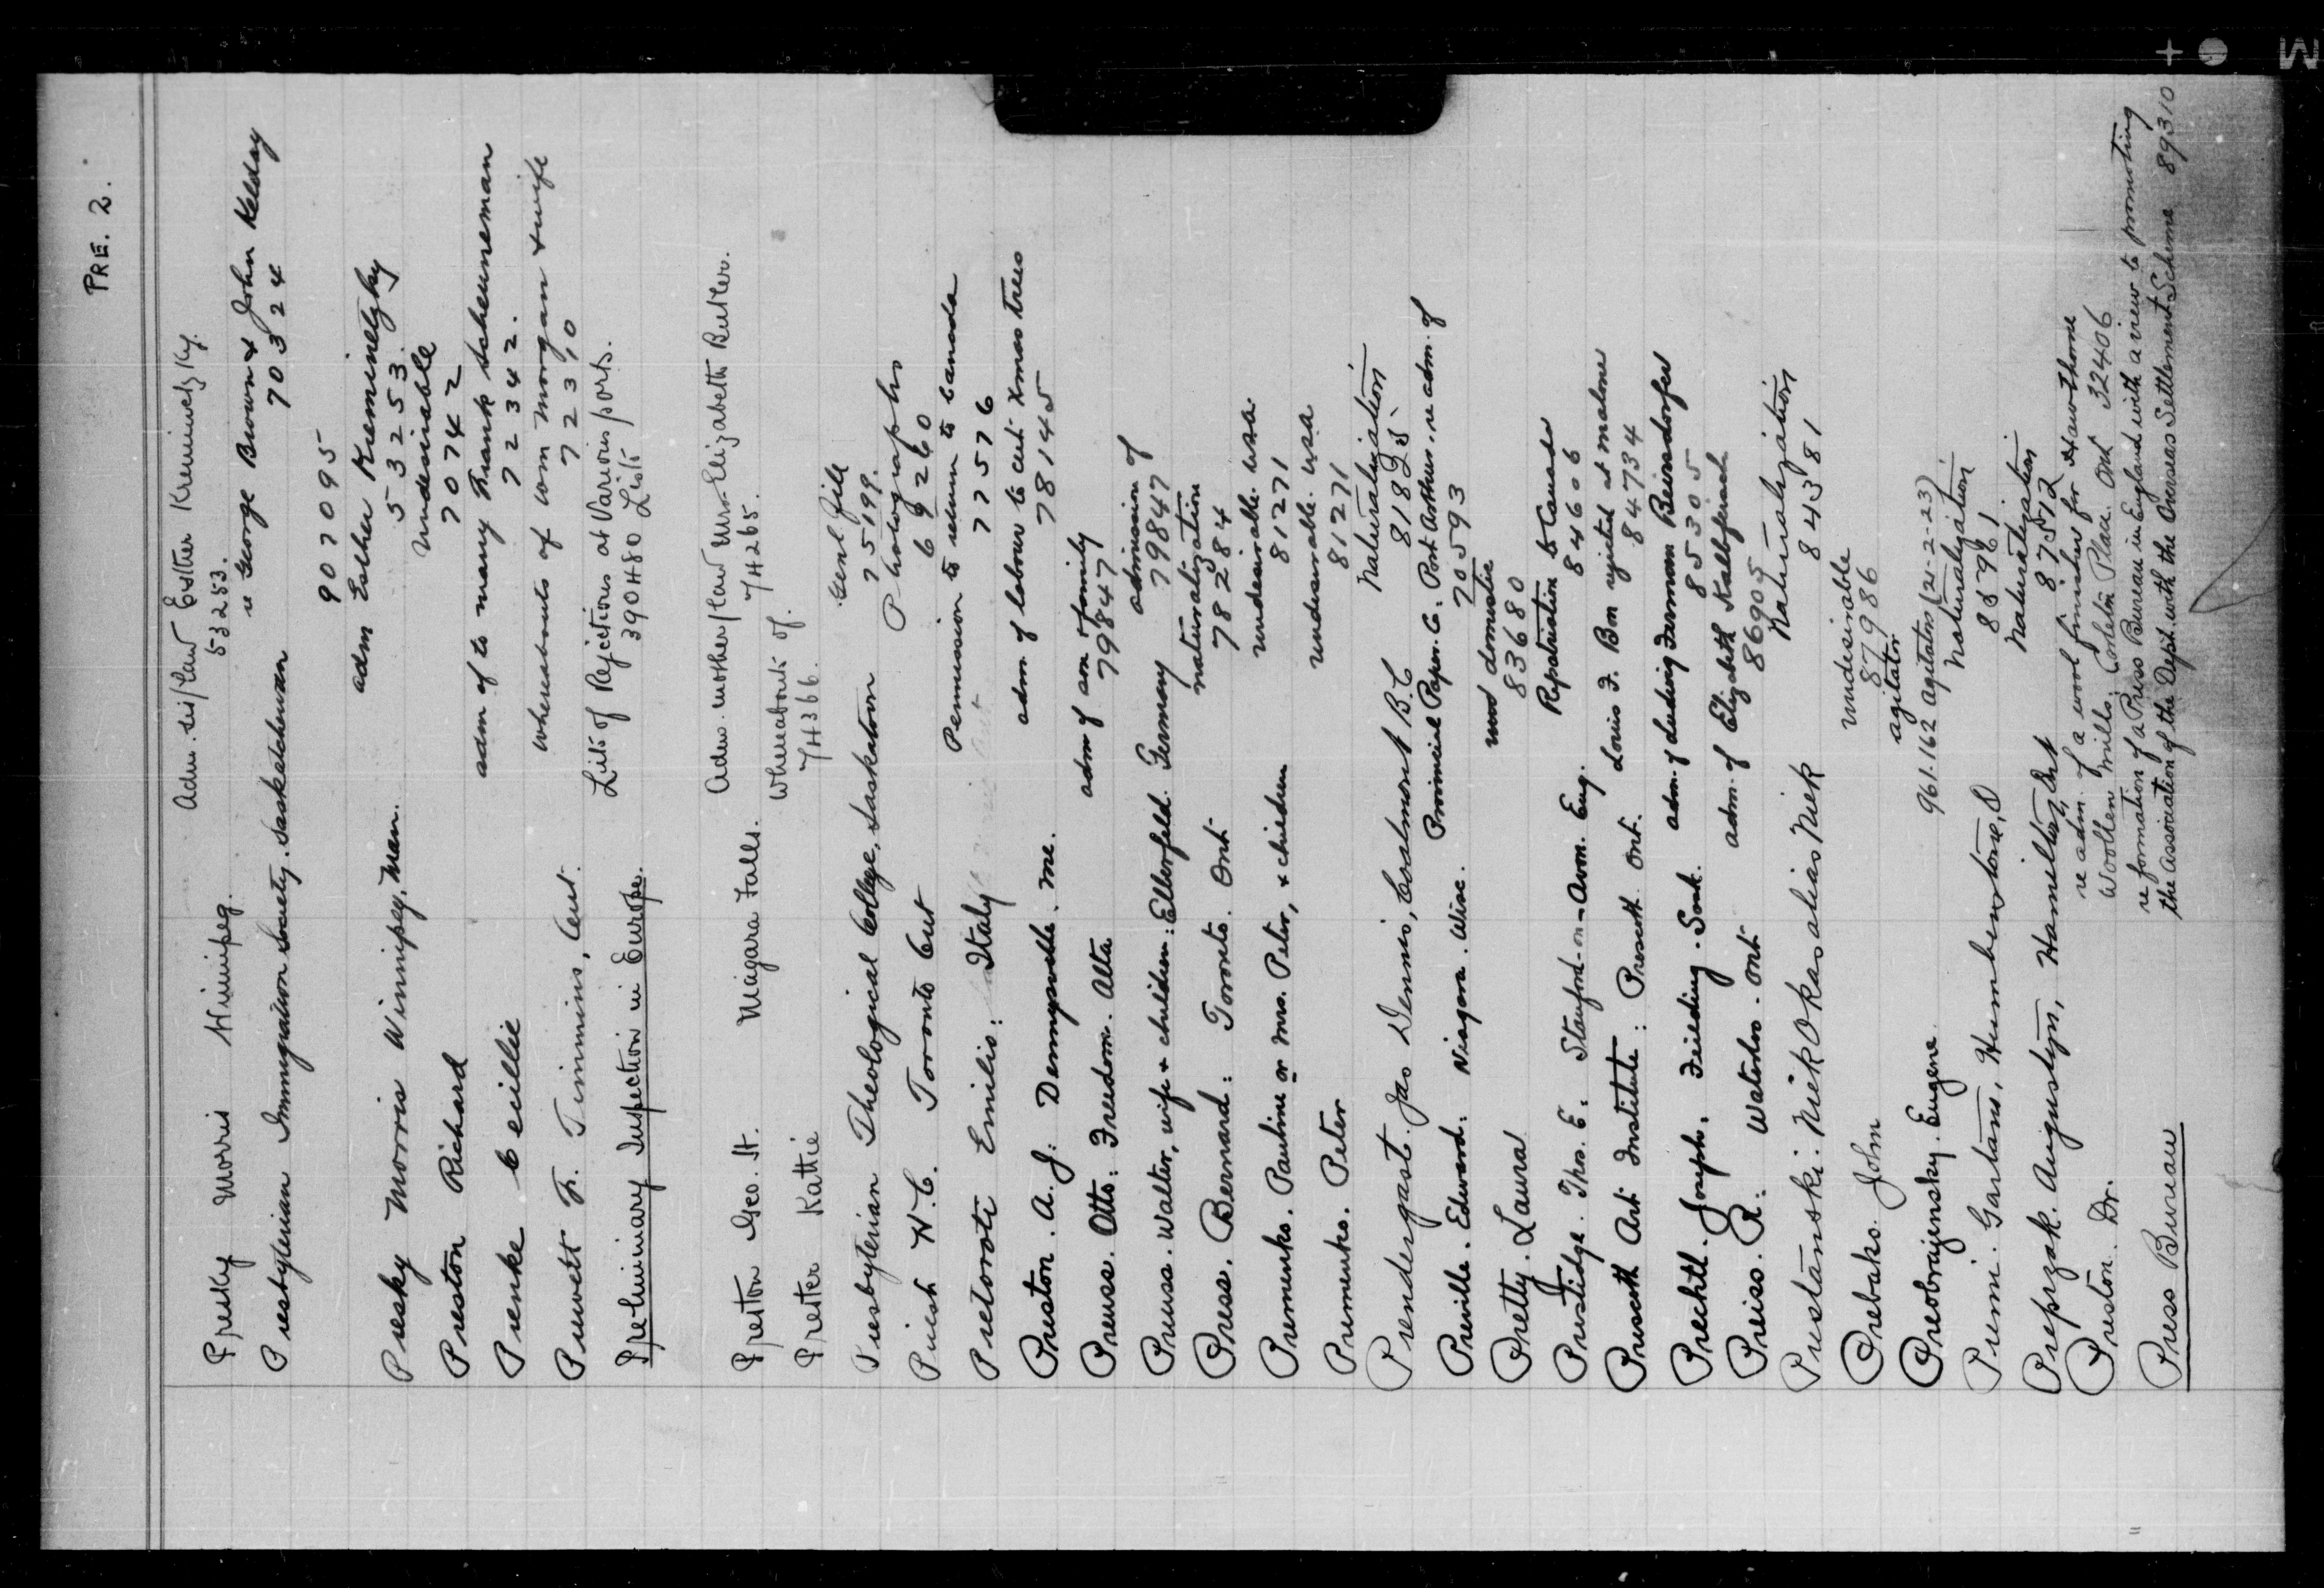 PRE. 2.
Adm. sis/law Esther Kreminetzky.
Presky Morris Winnipeg.
53253.
re George Brown & John Kelday
Presbyterian Immigration Society. Saskatchewan
70324
907095
adm Esther Kreminetzky
Presky Morris Winnipeg, Man.
53253.
undesirable
Preston Richard
70742
adm of to many Frank Scheunneman
Prenke Ceillie
72342.
whereabouts of wm Morgan & wife
Prewett F. Timmins, Ont.
72310
Lists of Rejections at Various ports.
Preliminary Inspection in Europe.
390480 Lists
Adm. mother/law Mrs Elizabeth Butler.
Preston Geo. H. Niagara Falls.
74265.
Whereabouts of.
Prester Kattie
74366.
Genl file
Presbyterian Theological College, Saskatoon
75199.
Photographs
Priest N.C. Toronto Ont
69260
Permission to return to Canada
Pretoroti Emilio: Italy
77576
adm of labour to cut Xmas trees
Preston. A. J: Dennysville. Me.
78145
adm of son & family
Preuss. Otto: Freedom. Alta
79847
admission of
Preuss. Walter, wife & children: Elberfeld. Germany
79847
naturalization
Press. Bernard: Toronto. Ont
78284
undesirable. USA.
Premenko. Pauline or Mrs. Peter, & children
81271
undesirable. USA
Premenko. Peter
81271
Naturalization
Prendergast. Jas Dennis, Coalmont B.C
81825
Provincial Paper. Co. Port Arthur. re adm. of
Preville. Edward. Niagara. Wisc.
70593
domestic
Pretty. Laura
83680
Repatriation to Canada
Prestidge. Thos. E. Stamford-on-Avon. Eng.
84606
Louis F. Bon rejected at Malone
Prescott Art Institute: Prescott. Ont.
84734
Prechtl. Joseph. Feilding. Sask.
85305
adm. of Elizabeth Kalbfleisch
Preiss. R. Waterloo. Ont
86905
Naturalization
Prestanski. Niek Okas alias Niek
84381
undesirable
Prebako. John
87986
agitator
Preobrajensky. Eugene.
961162 Agitators (21-2-23)
Naturalization
Premi. Gaetano, Humberstone, O
Naturalization
Preprzak. Augustyn, Hamilton, Ont
87512
re adm. of a wool finisher for Hawthorne
Preston. Dr.
Woollen Mills. Carleton Place. Ont 332406
re formation of a Press Bureau in England with a view to promoting
Press Bureau
the Association of the Dept. with the Overseas Settlement Scheme 89310